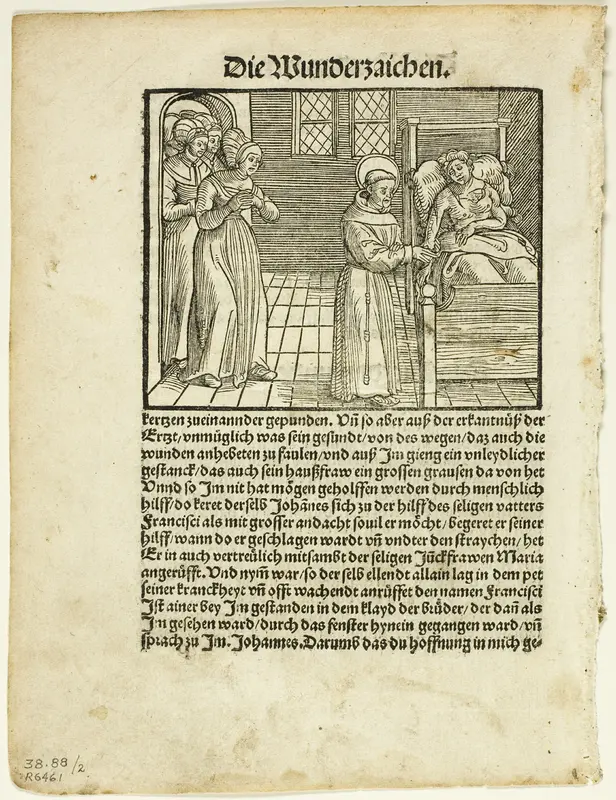 Die Wunderzaichen.
kertzen zueinannder gepunden. Vñ so aber auß der erkantnüß der
Ertzt/vnmüglich was sein gesundt/von des wegen/daz auch die
wunden anhebeten zu faulen/vnd auß Jm gieng ein vnleydlicher
gestanck/das auch sein haußfraw ein grossen grausen da von het
Vnnd so Jm nit hat mögen geholffen werden durch menschlich
hilff/do keret derselb Johãnes sich zu der hilff des seligen vatters
Francisci als mit grosser andacht souil er möcht/begeret er seiner
hilff/wann do er geschlagen wardt vñ vndter den straychen/het
Er in auch vertreülich mitsambt der seligen Jũckfrawen Maria
angerüfft. Vnd nym̃ war/so der selb ellendt allain lag in dem pet
seiner kranckheyt vñ offt wachendt anrüffet den namen Francisci
Jst ainer bey Jm gestanden in dem klayd der brüder/der dañ als
Jm gesehen ward/durch das fenster hynein gegangen ward/vñ
sprach zu Jm. Johannes. Darumb das du hoffnung in mich ge-
38.88/2
R6461